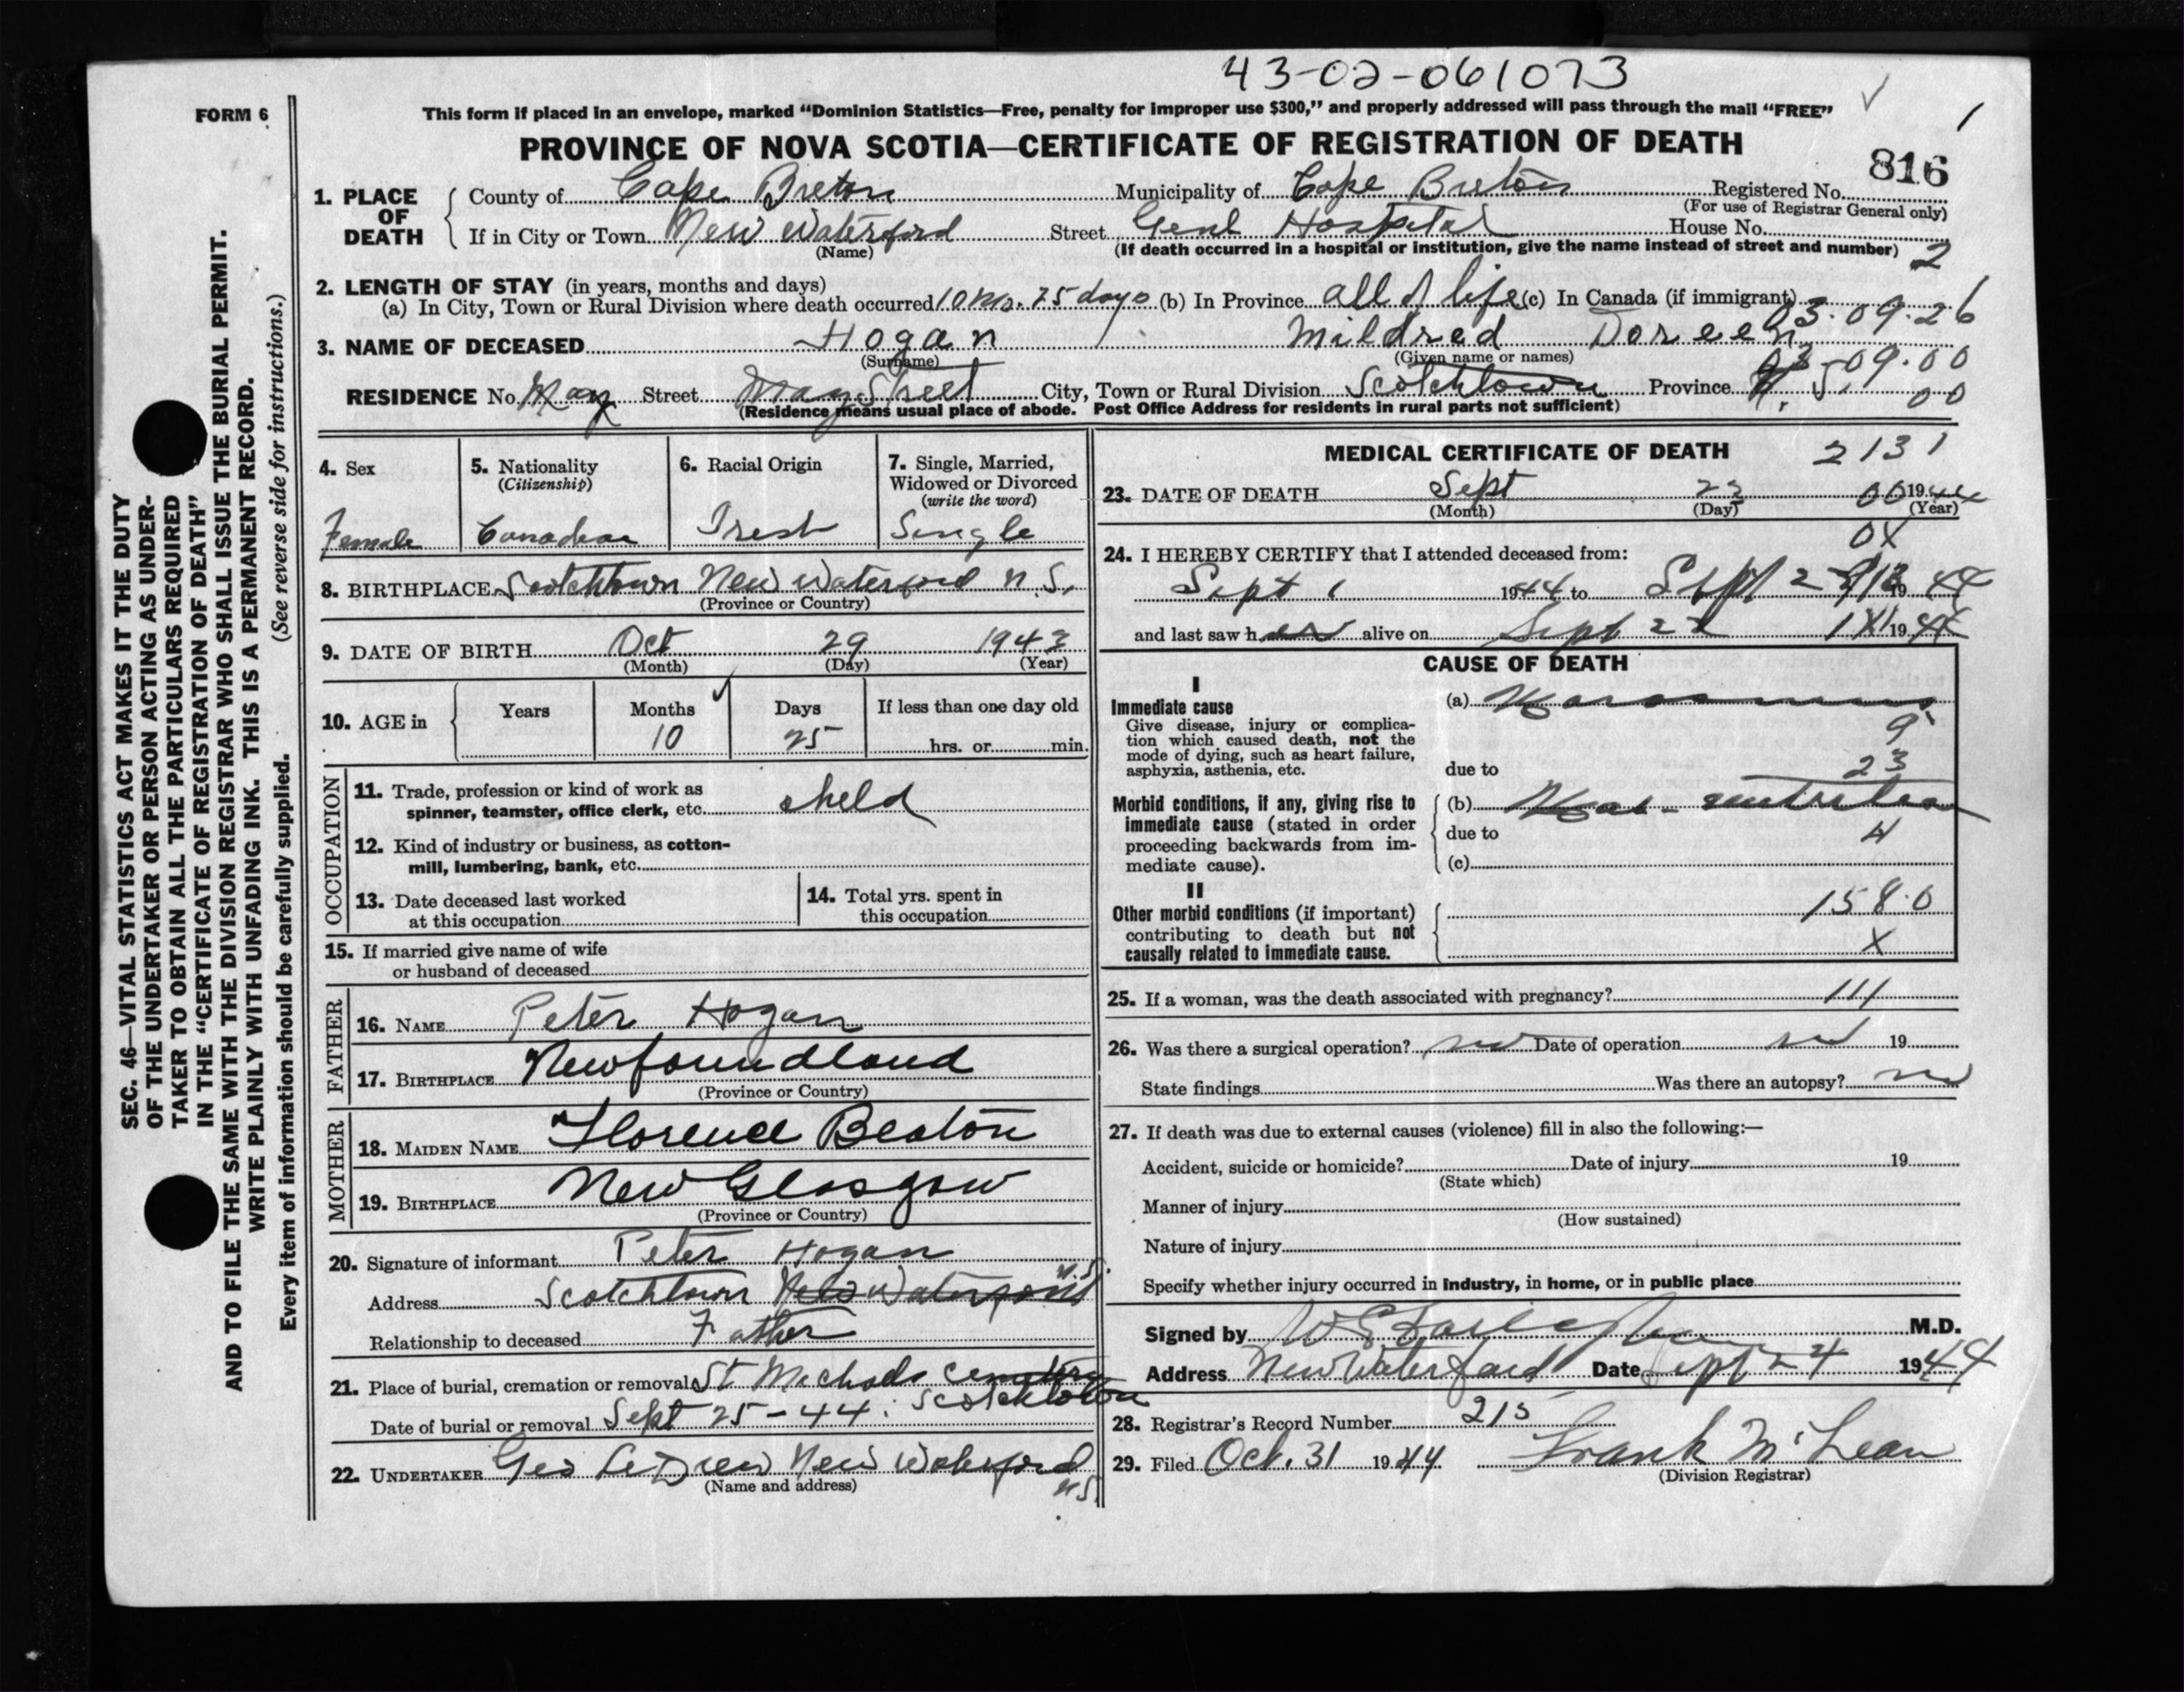 43-02-061073
FORM 6
This form if placed in an envelope, marked “Dominion Statistics—Free, penalty for improper use $300,” and properly addressed will pass through the mail “FREE”
1
PROVINCE OF NOVA SCOTIA—CERTIFICATE OF REGISTRATION OF DEATH
816
1. PLACE OF DEATH
County of Cape Breton Municipality of Cape Breton Registered No.
(For use of Registrar General only)
If in City or Town New Waterford Street Genl Hospital House No.
(Name) (If death occurred in a hospital or institution, give the name instead of street and number) 2
2. LENGTH OF STAY (in years, months and days)
(a) In City, Town or Rural Division where death occurred 10 ms. 25 days (b) In Province all of life (c) In Canada (if immigrant)
03.09.26
3. NAME OF DECEASED Hogan Mildred Doreen
(Surname) (Given name or names)
03-09.00
RESIDENCE No. May Street May Street City, Town or Rural Division Scotchtown Province N.S.
00
(Residence means usual place of abode. Post Office Address for residents in rural parts not sufficient)
4. Sex
Female
5. Nationality
(Citizenship)
Canadian
6. Racial Origin
Irish
7. Single, Married,
Widowed or Divorced
(write the word)
Single
8. BIRTHPLACE Scotchtown New Waterford N.S.
(Province or Country)
9. DATE OF BIRTH Oct 29 1943
(Month) (Day) (Year)
10. AGE in
Years Months Days If less than one day old
10 25 hrs. or min.
OCCUPATION
11. Trade, profession or kind of work as
spinner, teamster, office clerk, etc. child
12. Kind of industry or business, as cotton-
mill, lumbering, bank, etc.
13. Date deceased last worked
at this occupation
14. Total yrs. spent in
this occupation
15. If married give name of wife
or husband of deceased
FATHER
16. NAME Peter Hogan
17. BIRTHPLACE Newfoundland
(Province or Country)
MOTHER
18. MAIDEN NAME Florence Beaton
19. BIRTHPLACE New Glasgow
(Province or Country)
20. Signature of informant Peter Hogan
Address Scotchtown New Waterford N.S.
Relationship to deceased Father
21. Place of burial, cremation or removal St Michaels Cemetery
Scotchtown
Date of burial or removal Sept 25-44
22. UNDERTAKER Geo LeDrew New Waterford
N.S.
(Name and address)
MEDICAL CERTIFICATE OF DEATH
2131
23. DATE OF DEATH Sept 00 1944
(Month) (Day) (Year)
0X
24. I HEREBY CERTIFY that I attended deceased from:
Sept 1 1944 to Sept 19 44
and last saw her alive on Sept 22 19 44
CAUSE OF DEATH
I
Immediate cause
Give disease, injury or complica-
tion which caused death, not the
mode of dying, such as heart failure,
asphyxia, asthenia, etc.
(a) Marasmus
9
23
due to
Morbid conditions, if any, giving rise to
immediate cause (stated in order
proceeding backwards from im-
mediate cause).
(b) Mal-nutrition
due to
4
(c)
II
Other morbid conditions (if important)
contributing to death but not
causally related to immediate cause.
158.0
X
25. If a woman, was the death associated with pregnancy? 111
26. Was there a surgical operation? no Date of operation no 19
State findings Was there an autopsy? no
27. If death was due to external causes (violence) fill in also the following:—
Accident, suicide or homicide? Date of injury 19
(State which)
Manner of injury
(How sustained)
Nature of injury
Specify whether injury occurred in industry, in home, or in public place
Signed by M.D.
Address New Waterford Date Sept 24 1944
28. Registrar's Record Number 215
29. Filed Oct. 31 1944 Frank McLean
(Division Registrar)
SEC. 46—VITAL STATISTICS ACT MAKES IT THE DUTY
OF THE UNDERTAKER OR PERSON ACTING AS UNDER-
TAKER TO OBTAIN ALL THE PARTICULARS REQUIRED
IN THE “CERTIFICATE OF REGISTRATION OF DEATH”
AND TO FILE THE SAME WITH THE DIVISION REGISTRAR WHO SHALL ISSUE THE BURIAL PERMIT.
WRITE PLAINLY WITH UNFADING INK. THIS IS A PERMANENT RECORD.
Every item of information should be carefully supplied. (See reverse side for instructions.)